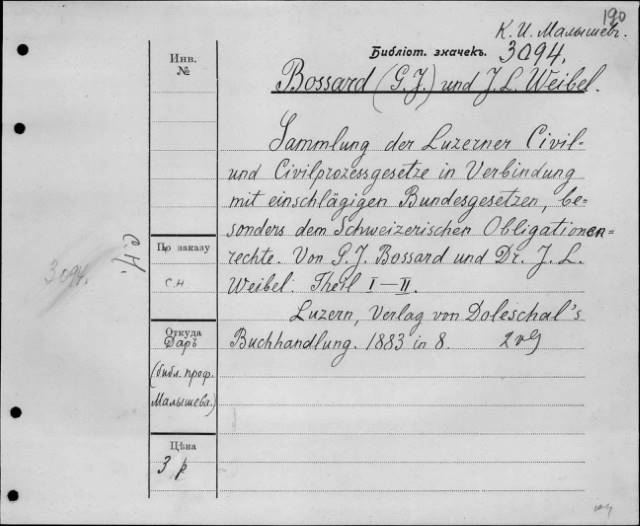 190
К. И. Малышев.
Библіот. значекъ. 3094.
Инв.
№
Bossard (G. J.) und J. L. Weibel.
Sammlung der Luzerner Civil-
und Civilprozessgesetze in Verbindung
mit einschlägigen Bundesgesetzen, be=
sonders dem Schweizerischen Obligationen=
rechte. Von G. J. Bossard und Dr. J. L.
Weibel: Theil I—II.
Luzern, Verlag von Doleschal's
Buchhandlung. 1883 in 8.
3094.
По заказу
с.н
Откуда
Даръ
(библ. проф.
Малышева.)
Цѣна
3 р